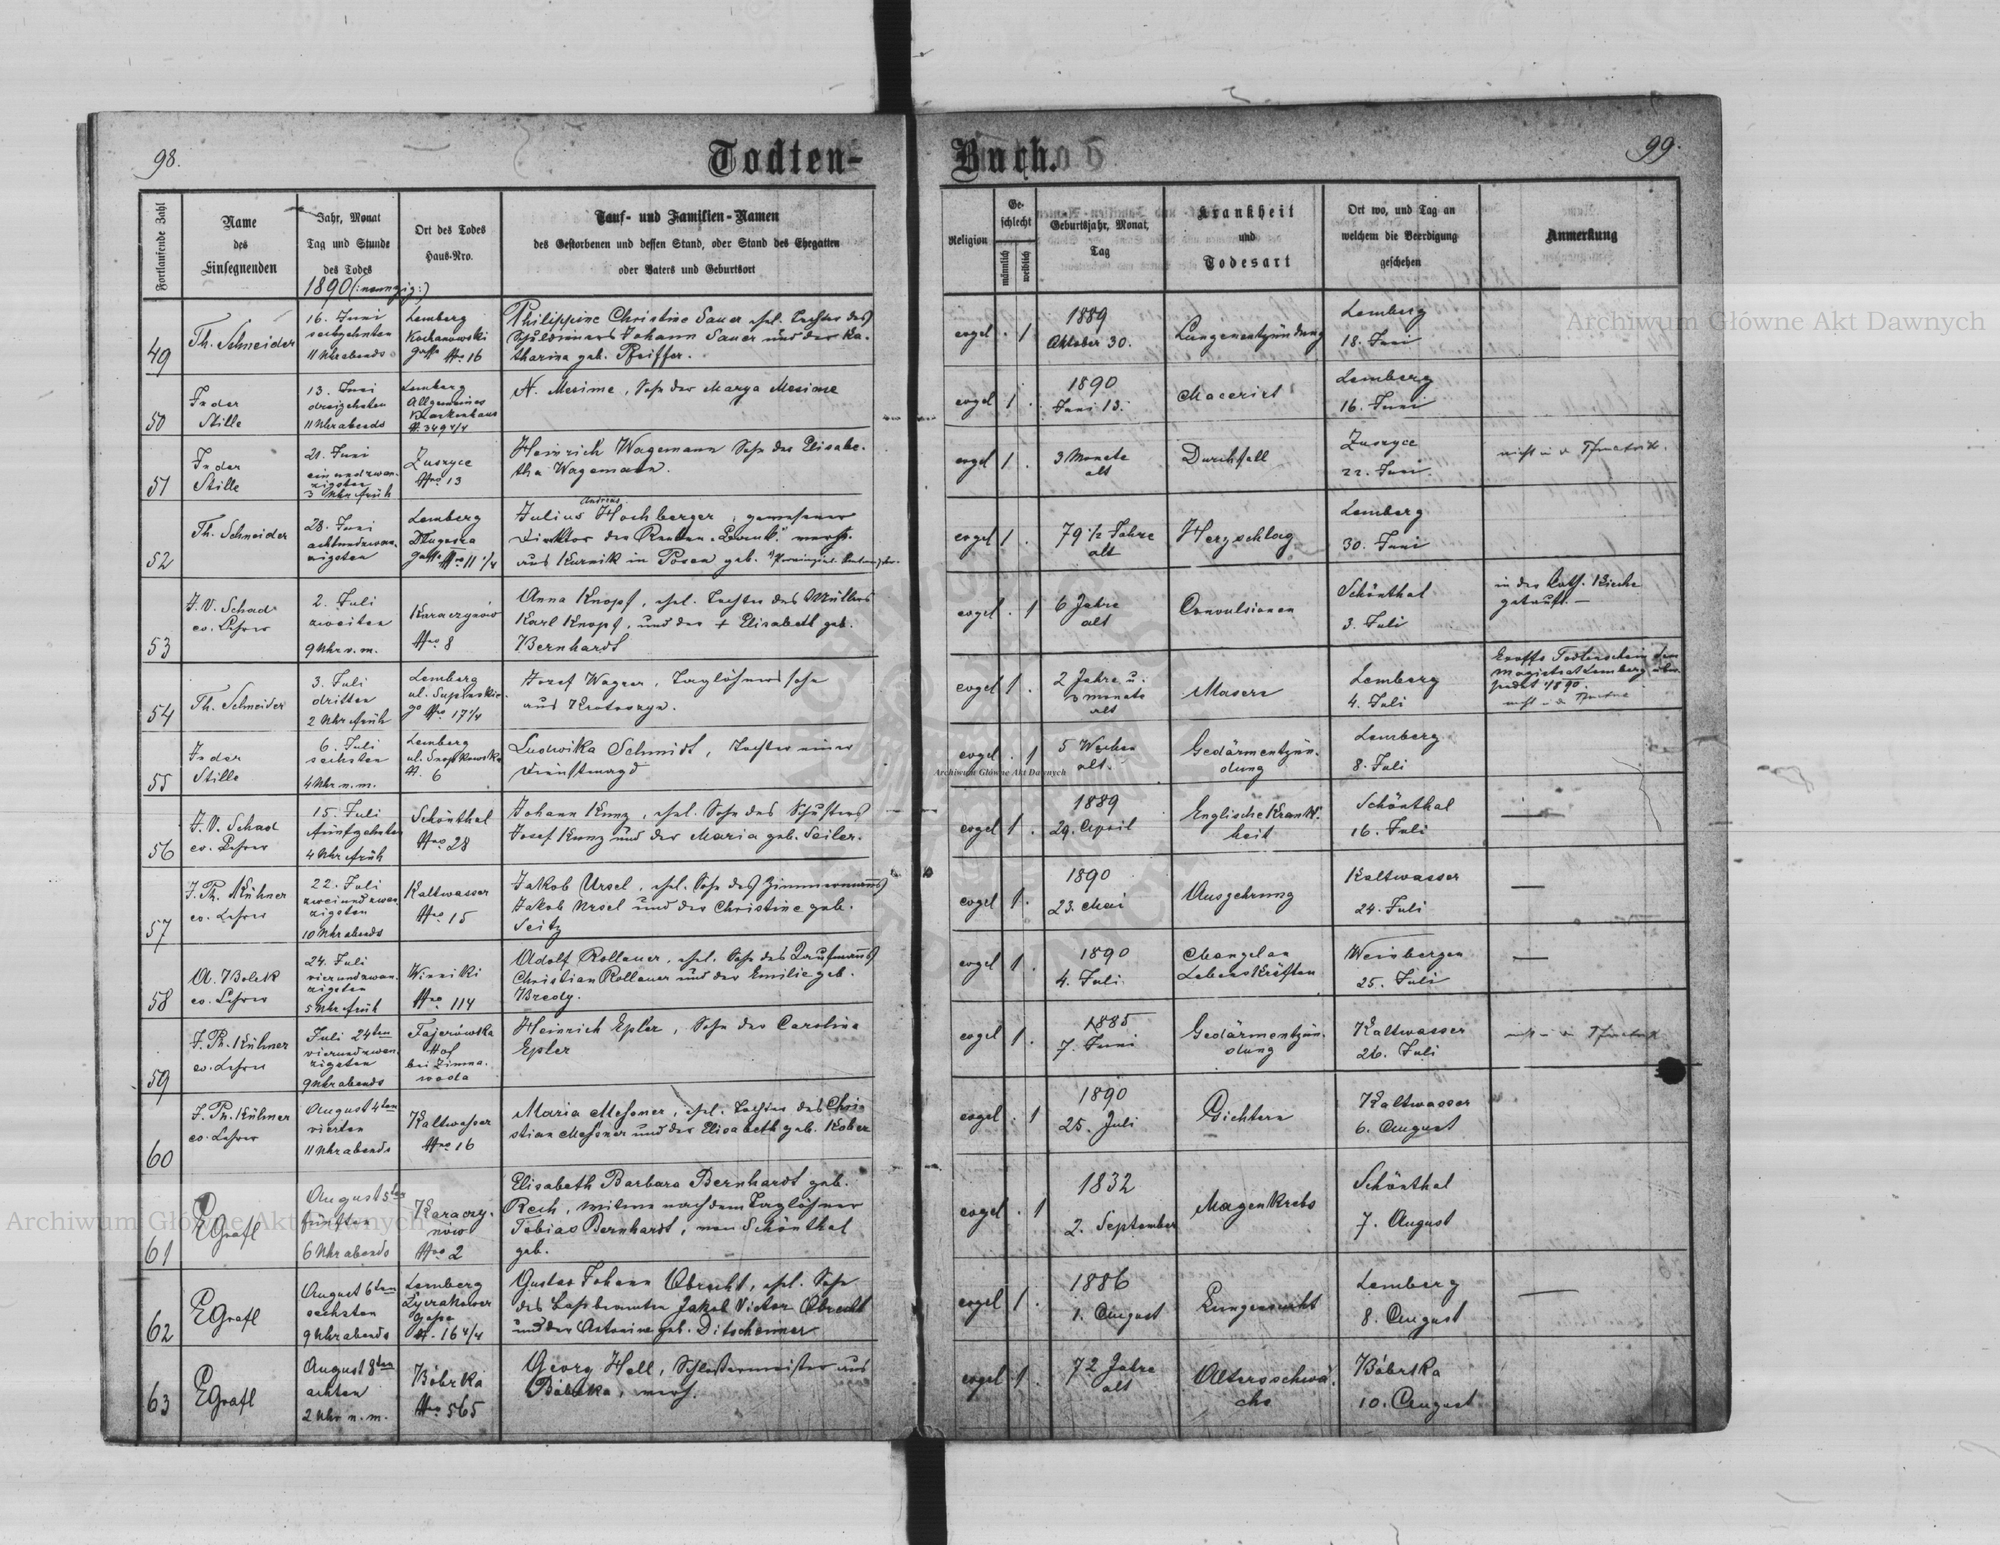 98.
Todten-
Fortlaufende Zahl
Name
des
Einsegnenden
Jahr, Monat
Tag und Stunde
des Todes
1890 (:neunzig:)
Ort des Todes
Haus-Nro.
Tauf- und Familien-Namen
des Gestorbenen und dessen Stand, oder Stand des Ehegatten
oder Vaters und Geburtsort
49
Th. Schneider
16. Juni
sechzehnten
11 Uhr abends
Lemberg
Kochanowski
gasse Nro 16
Philippine Christine Sauer ehel. Tochter des
Johann Sauer und der Ka-
tharina geb. Pfeiffer.
50
In der
Stille
13. Juni
dreizehnten
11 Uhr abends
Lemberg
Allgemeines
Krankenhaus
N. 349 4/4
N. Mesime, Sohn der Marya Mesime
51
In der
Stille
21. Juni
einundzwan-
zigsten
3 Uhr früh
Zuszyce
Nro 13
Heinrich Wagemann Sohn der Elisabe-
tha Wagemann.
52
Th. Schneider
28. Juni
achtundzwan-
zigsten
Lemberg
Długosza
gasse Nro 11 1/4
Andreas
Julius Hochberger, gewesener
Direktor der Renten-Bank
aus Kurnik in Posen geb.
53
J. V. Schad
ev. Lehrer
2. Juli
zweiten
9 Uhr v. m.
Karaczynów
Nro 8
Anna Knopf, ehel. Tochter des Müllers
Karl Knopf, und der + Elisabeth geb.
Bernhardt
54
Th. Schneider
3. Juli
dritten
2 Uhr früh
Lemberg
ul. Supinskie-
go Nro 17 1/4
Josef Wagner, Taglöhnerssohn
aus Krotoszyn.
55
In der
Stille
6. Juli
sechsten
4 Uhr n. m.
Lemberg
ul. Snopkowska
N. 6
Ludwika Schmidt, Tochter einer
Dienstmagd
56
J. V. Schad
ev. Lehrer
15. Juli
fünfzehnten
4 Uhr früh
Schönthal
Nro 28
Johann Kunz, ehel. Sohn des Schusters
Josef Kunz und der Maria geb. Seiler.
57
J. Ph. Kühner
ev. Lehrer
22. Juli
zweiundzwan-
zigsten
10 Uhr abends
Kaltwasser
Nro 15
Jakob Ursel, ehel. Sohn des Zimmermanns
Jakob Ursel und der Christine geb.
Seitz
58
A. Bolek
ev. Lehrer
24. Juli
vierundzwan-
zigsten
5 Uhr früh
Winniki
Nro 114
Adolf Rollauer, ehel. Sohn des Kaufmanns
Christian Rollauer und der Emilie geb.
Bredy.
59
J. Ph. Kühner
ev. Lehrer
Juli 24ten
vierundzwan-
zigsten
9 Uhr abends
Fajerówka
Hof
bei Zimna-
woda
Heinrich Epler, Sohn der Carolina
Epler
60
J. Ph. Kühner
ev. Lehrer
August 4ten
vierten
11 Uhr abends
Kaltwasser
Nro 16
Maria Messner, ehel. Tochter des Chri-
stian Messner und der Elisabeth geb. Kober
61
EGrafl
August 5ten
fünften
6 Uhr abends
Karaczy-
nów
Nro 2
Elisabeth Barbara Bernhardt geb.
Rech, Witwe nach dem Taglöhner
Tobias Bernhardt, von Schönthal
geb.
62
EGrafl
August 6ten
sechsten
9 Uhr abends
Lemberg
Łyczakower
gasse
N. 16 4/4
Gustav Johann Obrecht, ehel. Sohn
des Jakob Victor Obrecht
und der Antonine geb. Ditscheiner
63
EGrafl
August 8ten
achten
2 Uhr n. m.
Bóbrka
Nro 565
Georg Hell, Schlossermeister aus
Bóbrka,
Buch.
99.
Religion
Ge-
schlecht
männlich
weiblich
Geburtsjahr, Monat,
Tag
Krankheit
und
Todesart
Ort wo, und Tag an
welchem die Beerdigung
geschehen
Anmerkung
evgel . 1
1889
Oktober 30.
Lungenentzündung
Lemberg
18. Juni
evgel 1 .
1890
Juni 13.
Macerirt
Lemberg
16. Juni
evgel 1 .
3 Monate
alt
Durchfall
Zuszyce
22. Juni
evgel 1 .
79 1/2 Jahre
alt
Herzschlag
Lemberg
30. Juni
evgel . 1
6 Jahre
alt
Convulsionen
Schönthal
3. Juli
in der kath. Kirche
getauft. —
evgel 1 .
2 Jahre u.
3 monate
alt
Masern
Lemberg
4. Juli
Todtenschein dem
Magistrat Lemberg
1890.
evgel . 1
5 Wochen
alt.
Gedärmentzün-
dung
Lemberg
8. Juli
evgel 1 .
1889
29. April
Englische Krank-
heit
Schönthal
16. Juli
—
evgel 1 .
1890
23. Mai
Auszehrung
Kaltwasser
24. Juli
—
evgel 1 .
1890
4. Juli
Mangel an
Lebenskräften
Weinbergen
25. Juli
—
evgel 1 .
1885
7. Juni
Gedärmentzün-
dung
Kaltwasser
26. Juli
evgel . 1
1890
25. Juli
Gichtern
Kaltwasser
6. August
evgel . 1
1832
2. September
Magenkrebs
Schönthal
7. August
evgel 1 .
1886
1. August
Lungensucht
Lemberg
8. August
—
evgel 1 .
72 Jahre
alt
Altersschwä-
che
Bóbrka
10. August
Archiwum Główne Akt Dawnych
Archiwum Główne Akt Dawnych
Archiwum Główne Akt Dawnych